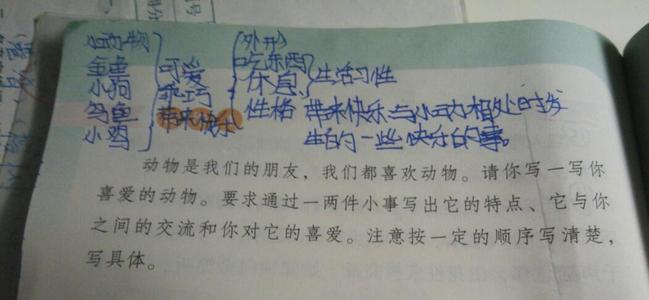 小动物 外形
可爱 吃东西
小狗 乖巧 休息 生活习性
带来快乐 性格 带来快乐与小动物相处时发
小鸡 生的一些快乐的事。
动物是我们的朋友，我们都喜欢动物。请你写一写你
喜爱的动物。要求通过一两件小事写出它的特点、它与你
之间的交流和你对它的喜爱。注意按一定的顺序写清楚，
写具体。